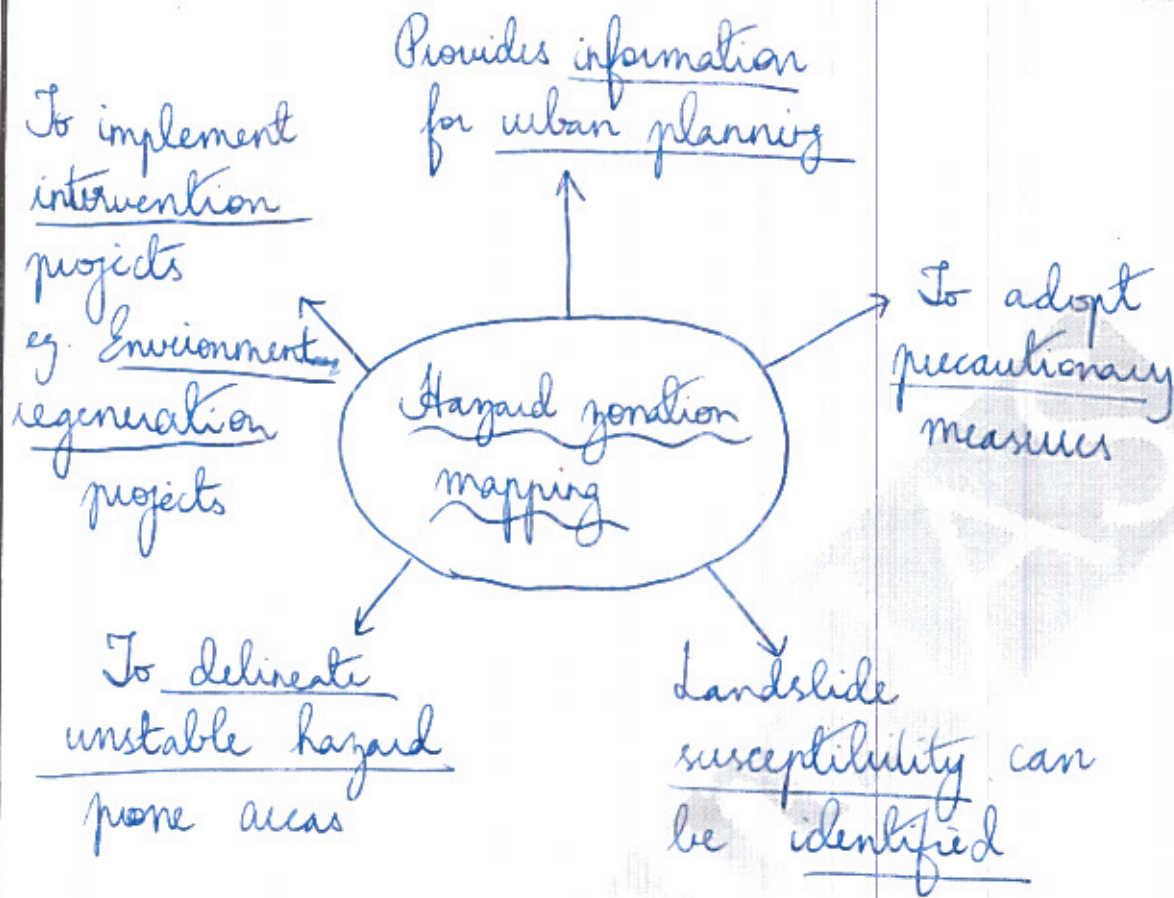 Provides information
for urban planning
To implement
intervention
projects
eg. Environment
regeneration
projects
To adopt
precautionary
measures
Hazard zonation
mapping
To delineate
unstable hazard
prone areas
Landslide
susceptibility can
be identified